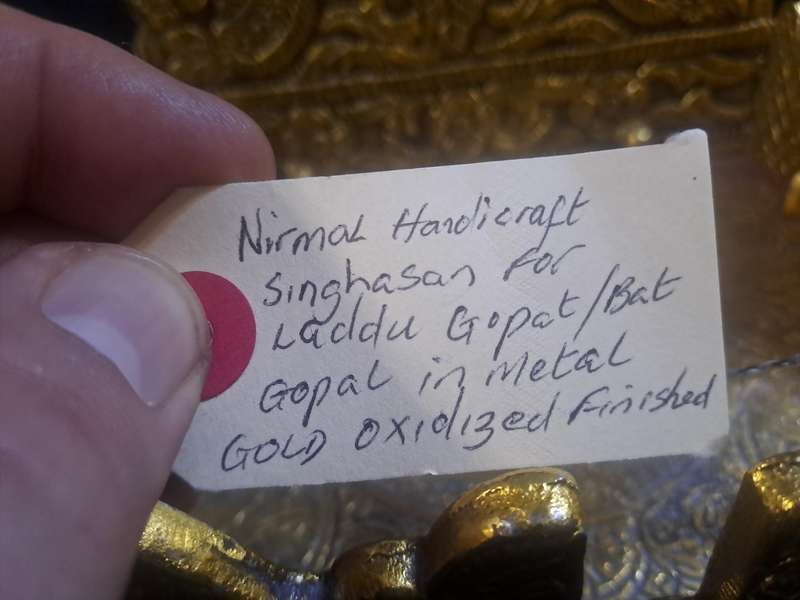 Nirmal Handicraft
Singhasan For
Laddu Gopat/Bat
Gopal in Metal
GOLD Oxidized Finished